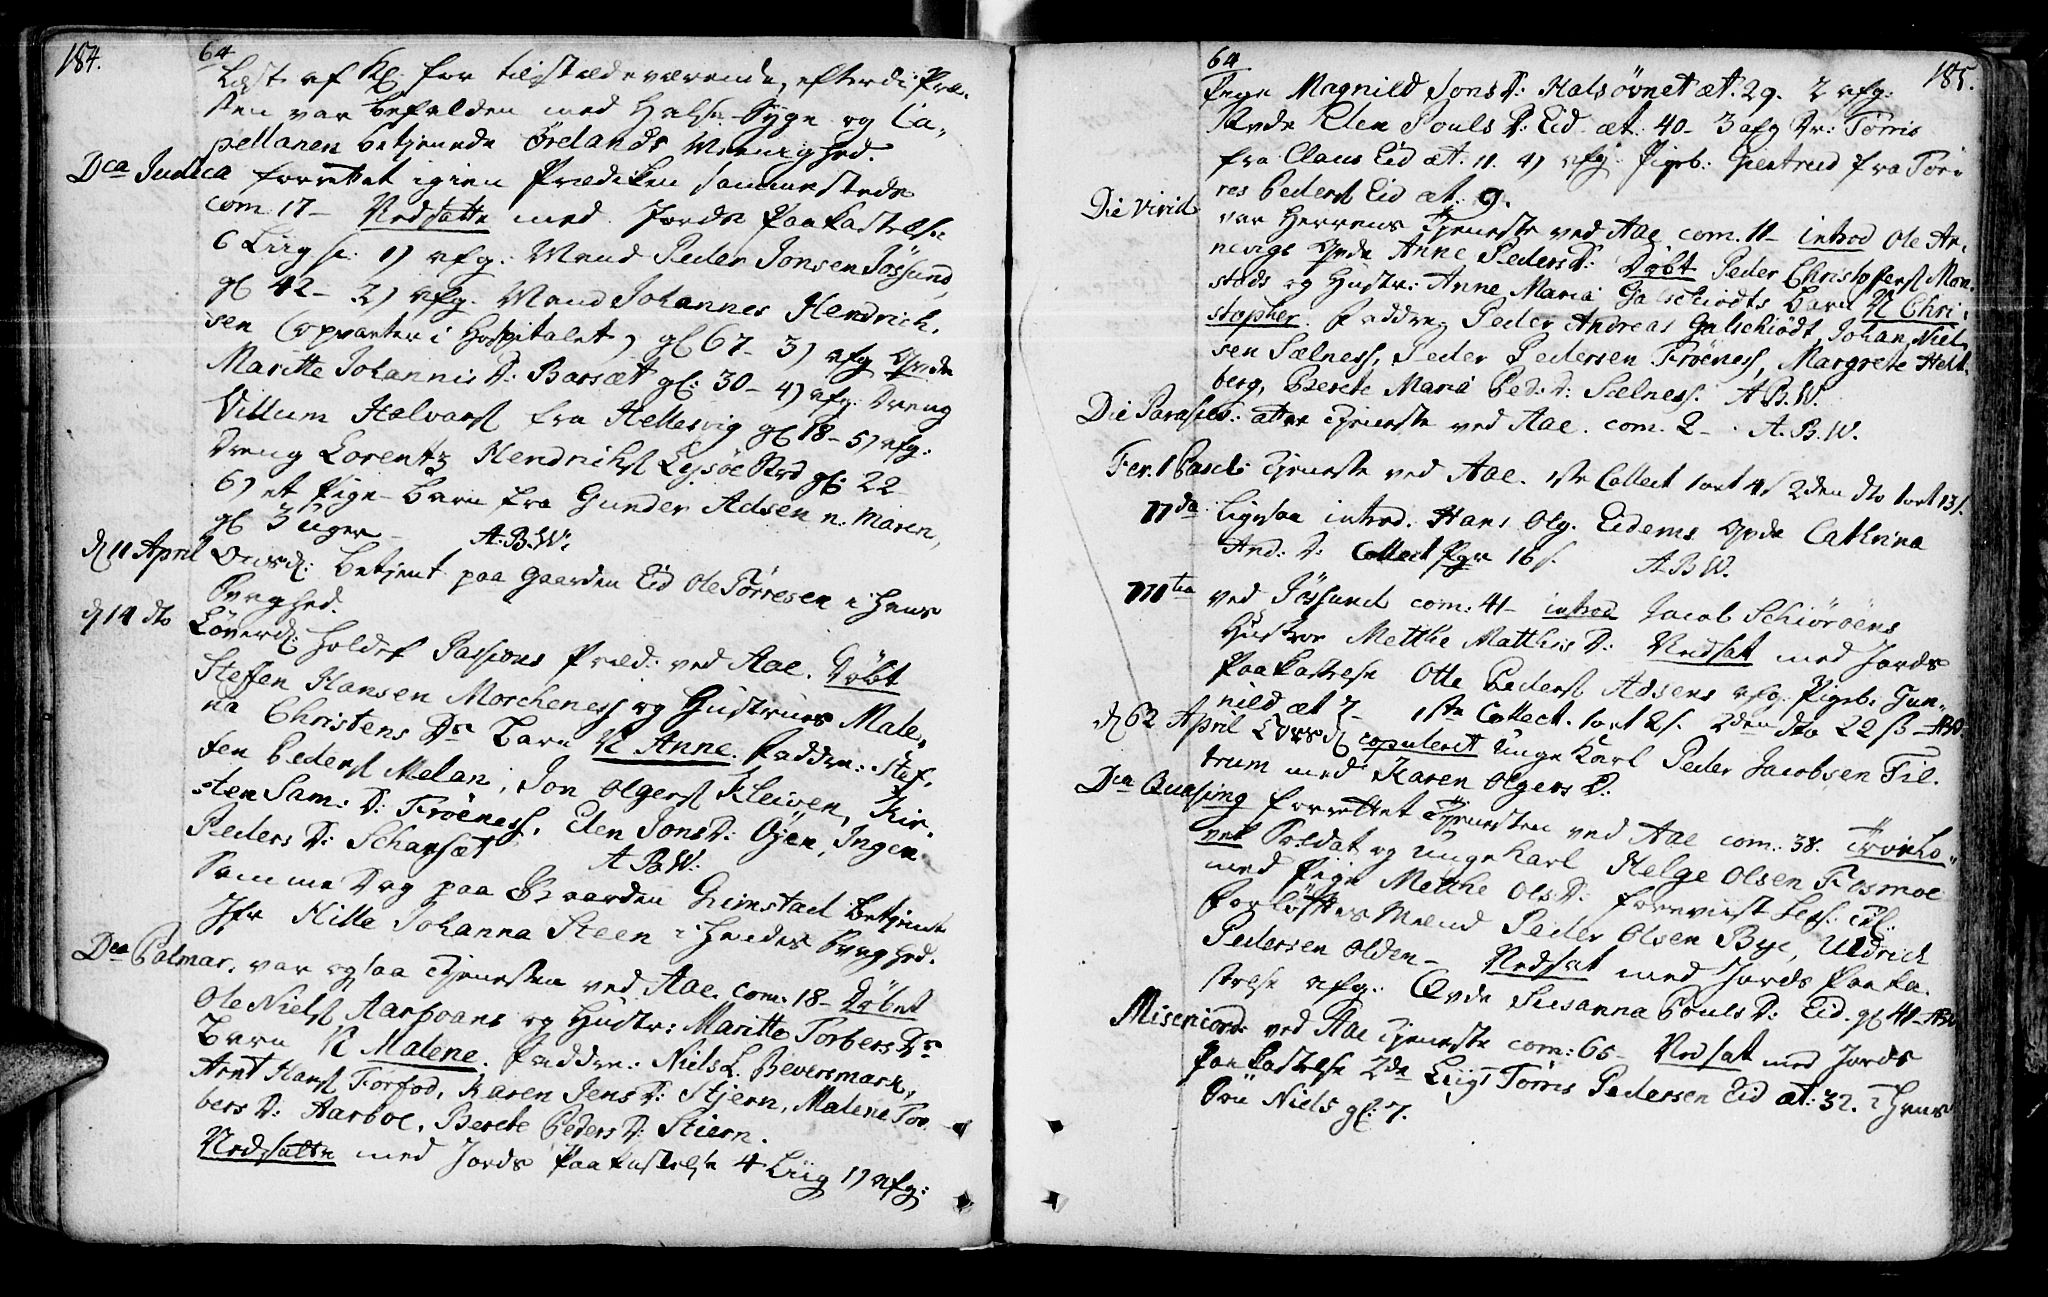 184.
64
Læst af Kl. for tilstædeværende, efterdi Præ-
sten var befalden med Halse-Syge og Ca-
pellanen betjenede Ørelands Menighed.
Dca Judica forrettet igien Prædiken sammestedz
com. 17 - Nedsatte med Jords Paakastelse
6 Liig s: 1) afg. Mand Peder Jonsen Jössund,
gl 42 - 2) afg. Mand Johannes Hendrich-
sen (opvarter i Hospitalet) gl 67 - 3) afg Qvde
Maritte Johannis D: Barsæt gl: 30 - 4) afg. Dreng
Villum Halvarsl fra Hellesvig gl 18 - 5) afg:
Dreng Lorentz Hendrichsl Lysöe gl: 22
6) et Pige-Barn fra Gunder Adsen n. Maren,
gl 3 uger - A.B.W.
d 11 April Onsd: betjent paa Gaarden Eid Ole Törresen i Hans
Svaghed.
d 14 dto Löverd: holdet Passions Præd: ved Aae. Döbt
Steffen Hansen Morchenes og Hustrues Male-
na Christens Dr Barn N Anne. Faddre: Stef-
fen Pedersl Melan, Jon Olgersl Kleiven, Kir-
sten Sam: D: Froeness, Elen Jons D: Öyen, Inger
Peders D: Schansæt A B W:
Samme Dag paa Gaarden Grimstad betjent
Jfr Hilla Johanna Steen i Hendes Svaghed.
Dca Palmar. var ogsaa Tjenesten ved Aae. com: 18 - Döbet
Ole Nielsl Aarboens og Hustr: Maritte Torbers Dr
Barn N Malene. Faddre: Niels L. Beversmark,
Arnt Hansl Forfod, Karen Jens D: Stjern, Malene Tor-
bers D: Aarboe, Berete Peders D: Stiern.
Nedsatte med Jords Paakastelse 4 Liig 1) afg:
64
185.
Pige Magnild Jons D: Halsövnet æt. 29. 2 afg:
Qvde Elen Pouls D: Eid æt: 40 - 3 afg Dr: Törris
fra Claus Eid æt. 11. 4) afg. Pigeb: Giertrud fra Tör-
res Pedersl Eid æt. 9.
Die Virid. var Herrens Tjeneste ved Aae com. 11 - introd Ole Ar-
nevigs Qvde Anne Peders D: Döbt Peder Christophersl Mon-
stads og Hustr: Anne Maria Galschiödts Barn N Chri-
stopher. Faddre Peder Andreas Galschiödt, Johan Niel-
sen Sælness, Peder Pedersen Froeness, Margrete Heth-
berg, Berete Maria Ped: D: Sælness. A.B.W.
Die Parasceu: atter Tjeneste ved Aae. com. 2 - A.B.W.
Fer. 1 Pasch: Tjeneste ved Aae. 1ste Collect 1ort 4s 2den dto 1ort 13s.
II da Ligesaa introd. Hans Olg. Eidems Qvde Cathrina
And: D: Collect Pge 16 s. A.B.W.
III tia ved Jössund com: 41 - introd Jacob Schiöröens
Hustroe Mettke Matthis D: Nedsat med Jords
Paakastelse Otte Pedersl Adsens afg. Pigeb: Gun-
nild æt 7 - 1ste Collect. 1ort 2s. 2den dto 22 ß - ABW.
d 62 April copuleret unge Karl Peder Jacobsen Til-
trum med Karen Olgers D:
Dca Quasimg forrettet Tjenesten ved Aae com: 38. Trovlo-
vet Soldat og unge Karl Helge Olsen Fosmoe
med Pige Metthe Ols D: foreviist
Forlöftes Mænd Peder Olsen Bye, Uldrich
Pedersen Olden - Nedsat med Jords Paaka-
stelse afg. Qvde Susanna Pouls D: Eid. gl 41 - ABW
Misericord: ved Aae Tjeneste com: 65 - Nedsat med Jords
Paakastelse 2de Liig: Törris Pedersen Eid æt: 32. i Hans
Niels gl: 7.